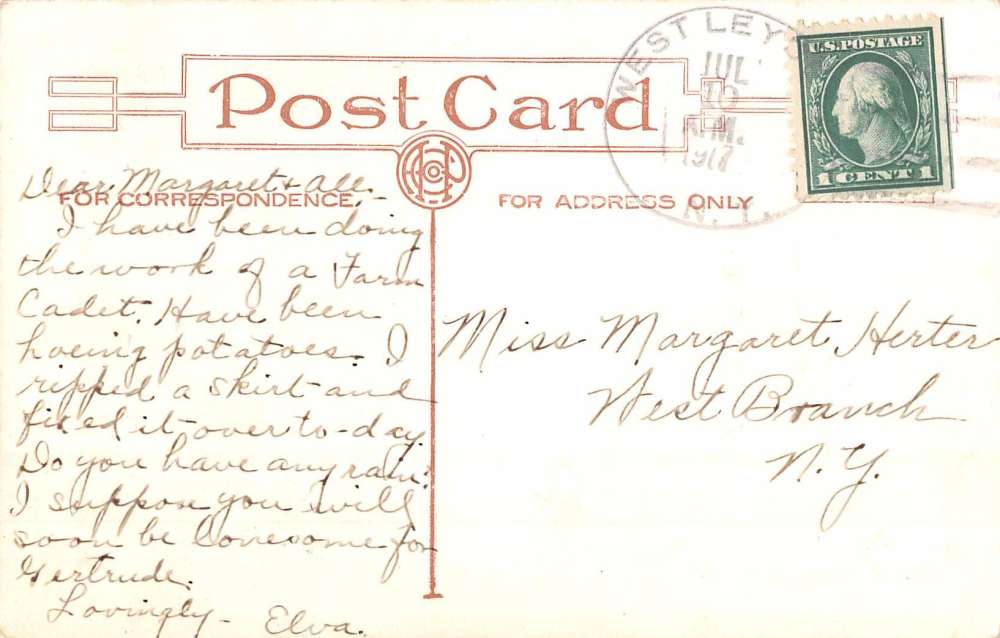 Post Card
WEST LEY
JUL
10
A.M.
1917
N.Y.
U.S. POSTAGE
1 CENT 1
FOR CORRESPONDENCE.
FOR ADDRESS ONLY
Dear Margaret & all.-
I have been doing
the work of a Farm
Cadet. Have been
hoeing potatoes. I
ripped a skirt and
fixed it over to-day.
Do you have any rain?
I suppose you will
soon be lonesome for
Gertrude.
Lovingly - Elva.
Miss Margaret Herter
West Branch
N.Y.